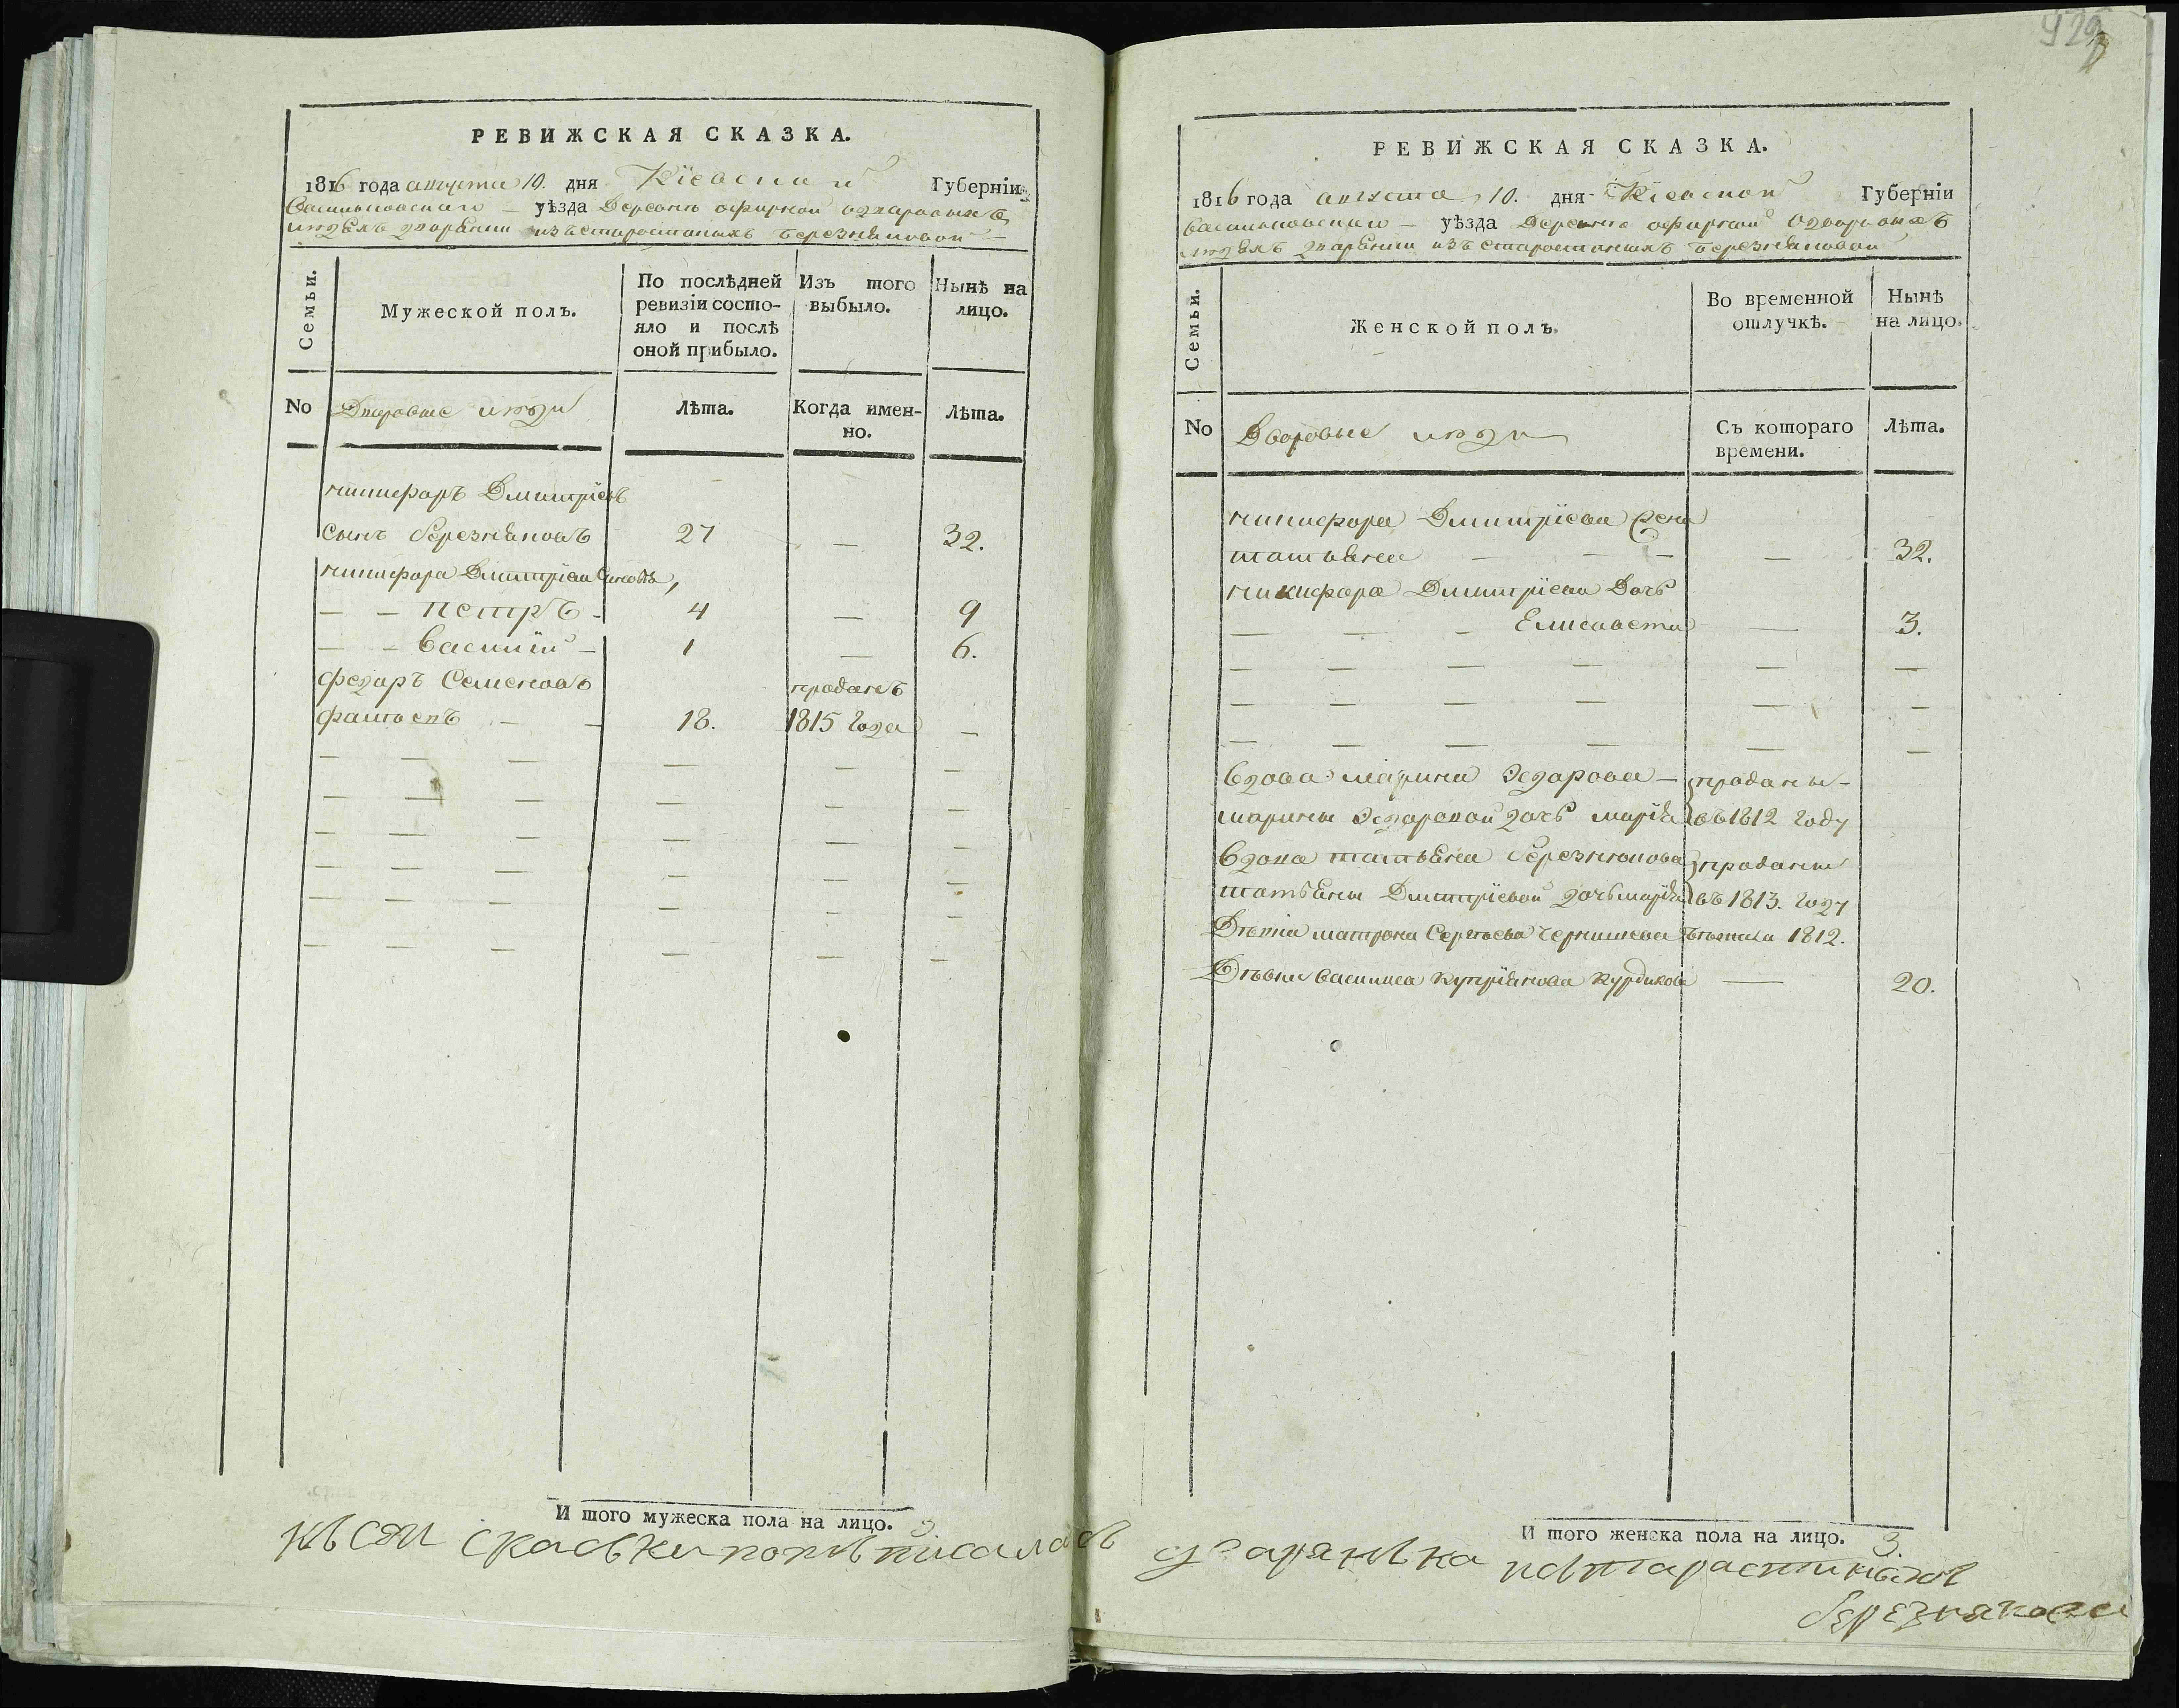 РЕВИЖСКАЯ СКАЗКА.
1816 года августа 10. дня Кіевской Губерніи
Васильковскаго уѣзда Деревни офирной о дворовыхъ
людяхъ дворянки изъ Старостиныхъ Березняковой
Семьи.
Мужеской полъ.
По послѣдней ревизіи состояло и послѣ оной прибыло.
Изъ того выбыло.
Нынѣ на лицо.
No
Дворовые люди
Лѣта.
Когда именно.
Лѣта.
никифоръ Дмитріевъ
сынъ березняковъ 27 — 32.
никифора Дмитріева Сыновья,
— — петръ — 4 — 9
— — василій — 1 — 6.
федоръ Семеновъ проданъ
18. 1815 года —
И того мужеска пола на лицо. 3
929
РЕВИЖСКАЯ СКАЗКА.
1816 года августа 10. дня Кіевской Губерніи
Васильковскаго — уѣзда Деревни офирной о дворовыхъ
людяхъ дворянки изъ старостиныхъ березняковой
Семьи.
Женской полъ.
Во временной отлучкѣ.
Нынѣ на лицо.
No
Дворовые люди
Съ котораго времени.
Лѣта.
никифора Дмитріева жена
татьяна — — — — 32.
никифора Дмитріева Дочь
— — — Елисавета — 3.
вдова марина Федорова — проданы —
марины Федоровой дочь марія въ 1812 году
вдова татьяна березнякова проданы
татьяны Дмитріевой дочь марія въ 1813. году
матрона Сергѣева чернишева бѣжала 1812.
Дѣвка василиса Купріянова Курдикова — 20.
И того женска пола на лицо. 3.
Къ сей скаске подписалась дварянка Истарастиныхъ
Березнякова